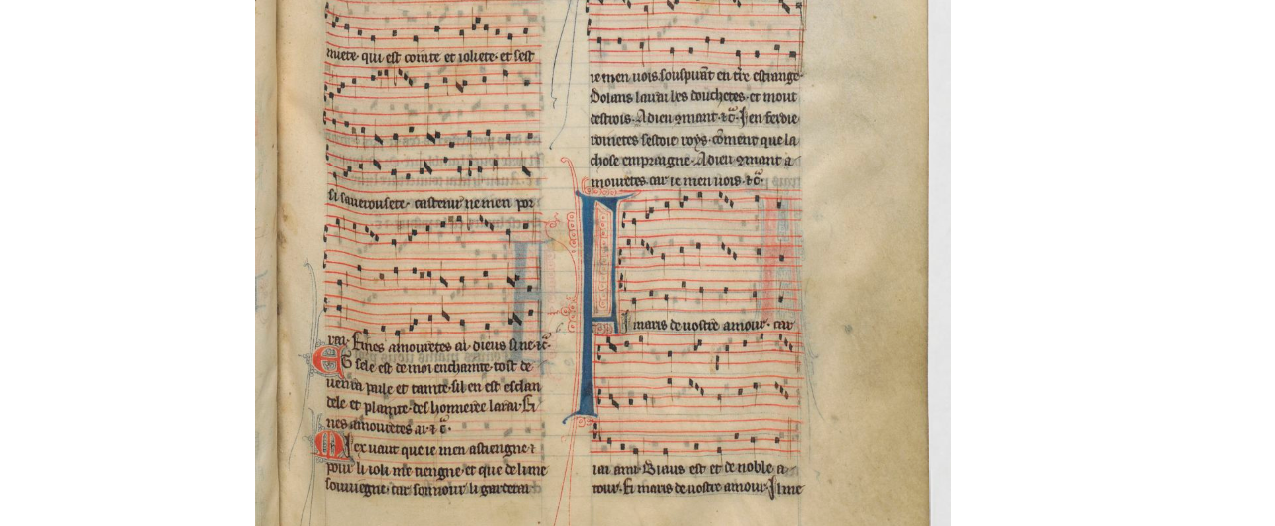 muete· qui est cointe et ioliete· et sest
si sauerousete· castenir ne men por
rai· Fines amouretes ai· dieus si ne· ⁊c̄·
E sele est de moi enchainte tost de
uenra pale et tainte· sil en est esclan
dele et plainte· deshonneree larai· Fi
nes amouretes ai ⁊ c̄·
M iex uaut que ie men astiengne ⁊
pour li ioli me tiengne· et que de li me
souuiegne· car sonnour li garderai
ie men uois souspirant en tr̄e estrange·
Dolans lairai les douchetes· et mout
destrois· A dieu 9mant· ⁊c̄· J en feroie
roinetes sestoie roys· 9ment que la
chose empraigne· A dieu 9mant a
mouretes car ie men uois· ⁊c̄·
F i maris de uostre amour· car
iai ami· Biaus est et de noble a
tour· Fi maris de uostre amour· Il me